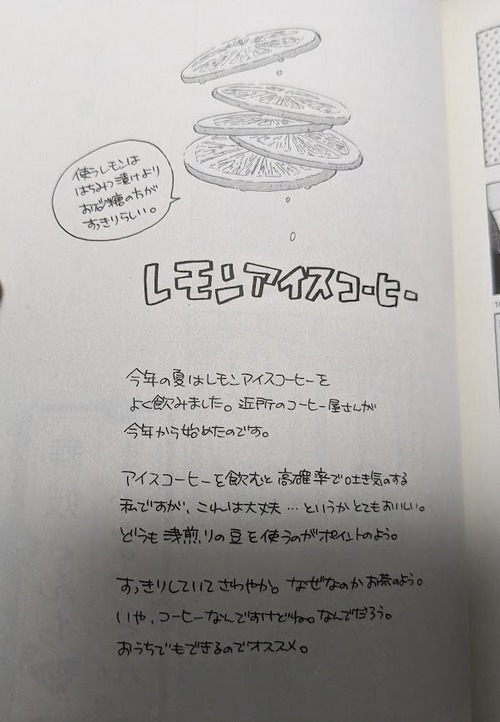 使うレモンは
はちみつ漬けより
お砂糖の方が
すっきりらしい。
レモンアイスコーヒー
今年の夏はレモンアイスコーヒーを
よく飲みました。近所のコーヒー屋さんが
今年から始めたのです。
アイスコーヒーを飲むと高確率で吐き気のする
私ですが、これは大丈夫…というかとてもおいしい。
どうも浅煎りの豆を使うのがポイントのよう。
すっきりしていてさわやか。なぜなのかお茶のよう。
いや、コーヒーなんですけどね。なんでだろう。
おうちでもできるのでオススメ。